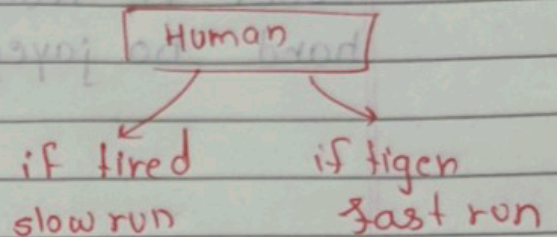 Human
if tired
slow run
if tiger
fast run